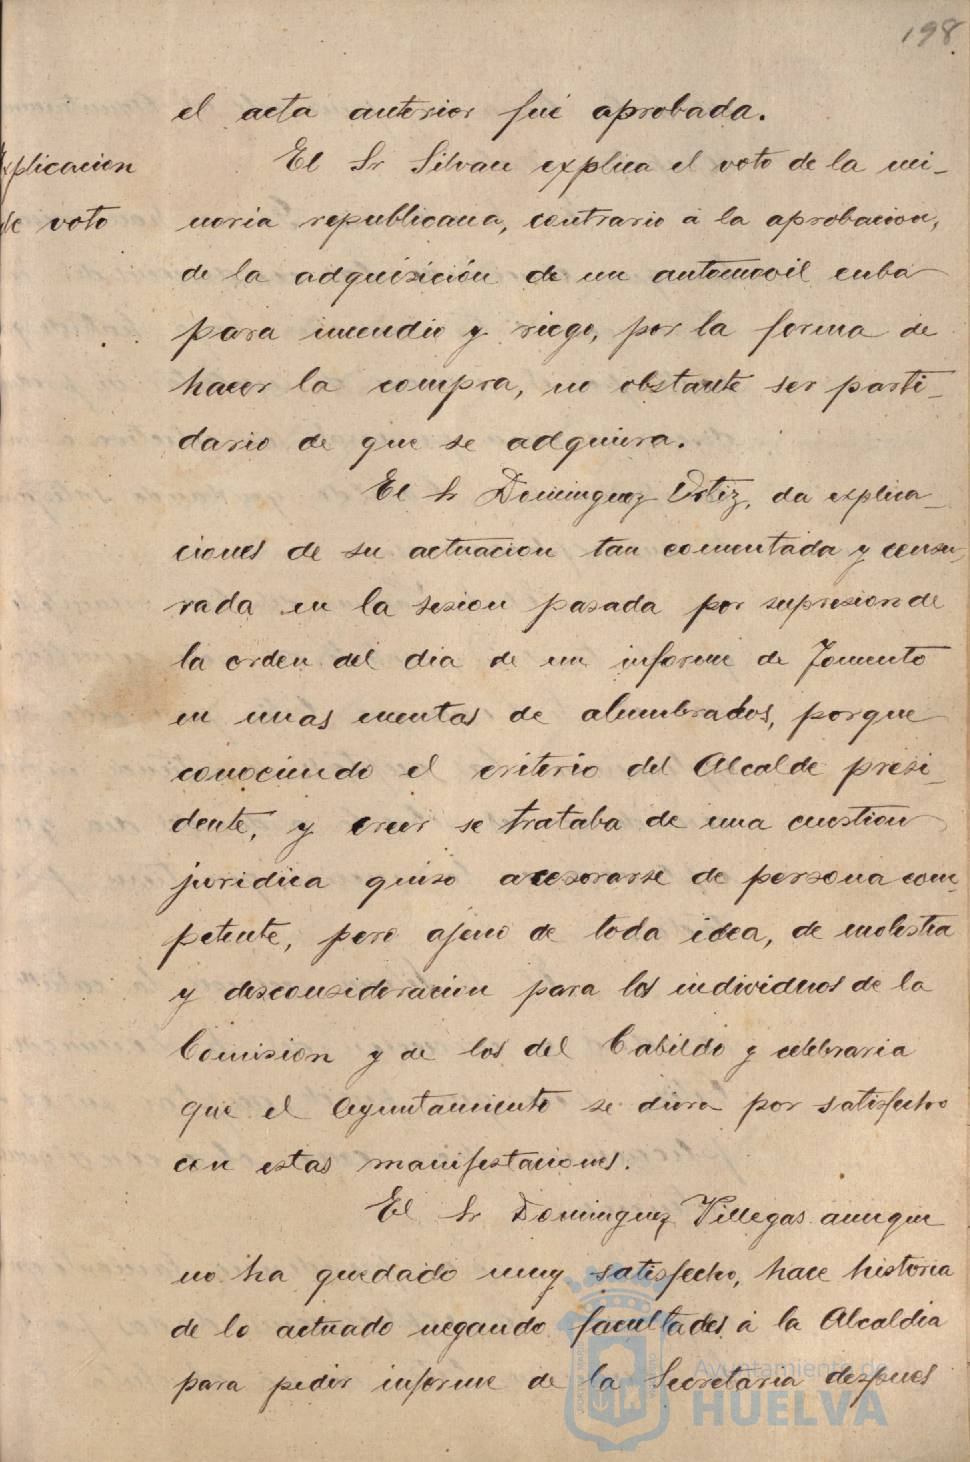 198.
el acta anterior fué aprobada.
Explicacion
de voto
El Sr Silvan explica el voto de la mi-
noria republicana, contrario á la aprobacion,
de la adquisición de un automovil cuba
para incendio y riego, por la forma de
hacer la compra, no obstante ser parti-
dario de que se adquiera.
El Sr Dominguez Ortiz, da explica-
ciones de su actuacion tan comentada y censu-
rada en la sesion pasada por supresion de
la orden del dia de un informe de Fomento
en unas cuentas de alumbrados, porque
conociendo el criterio del Alcalde presi-
dente, y creer se trataba de una cuestion
juridica quiso acesorarse de persona com-
petente, pero ajeno de toda idea, de molestia
y desconsideracion para los individuos de la
Comision y de los del Cabildo y celebraria
que el Ayuntamiento se diera por satisfecho
con estas manifestaciones.
El Sr Dominguez Villegas aunque
no ha quedado muy satisfecho, hace historia
de lo actuado negando facultades á la Alcaldia
para pedir informe de la Secretaria despues
Ayuntamiento de
HUELVA